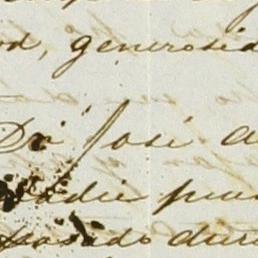 od, generosid
Dn José a
nadie pue
pasado dura